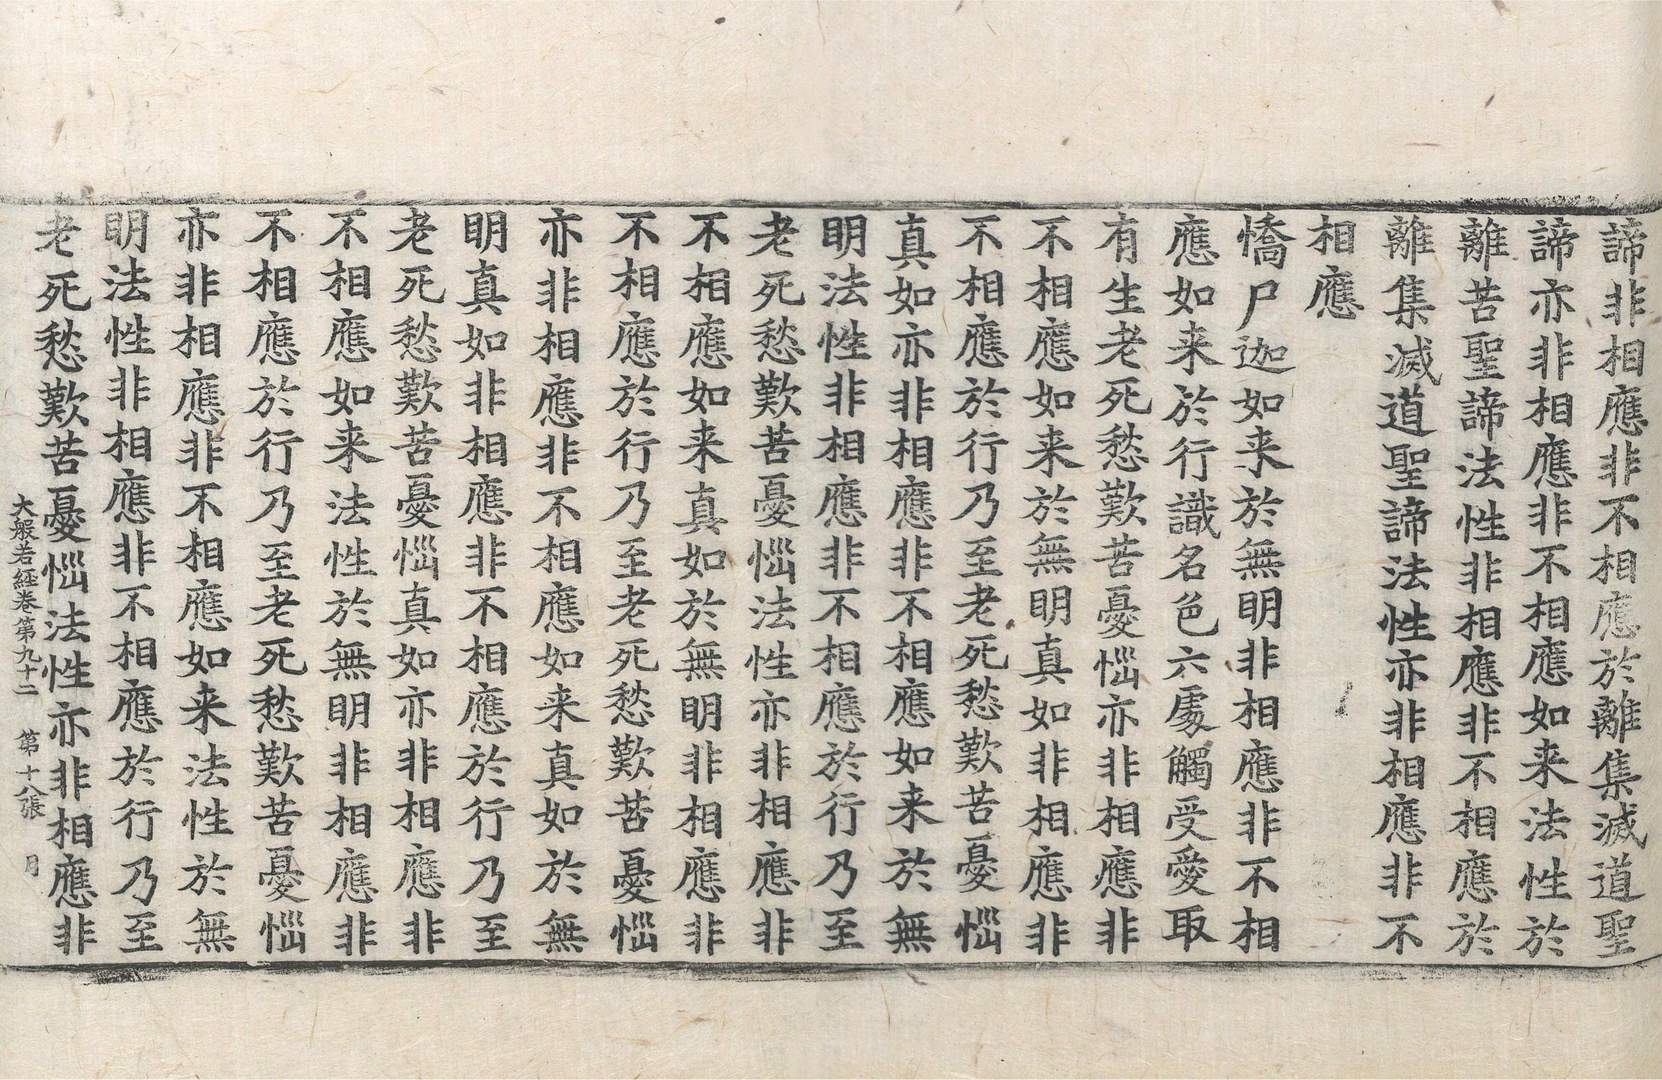 諦非相應非不相應於離集滅道聖
諦亦非相應非不相應如来法性於
離苦聖諦法性非相應非不相應於
離集滅道聖諦法性亦非相應非不
相應
憍尸迦如来於無明非相應非不相
應如来於行識名色六處觸受愛取
有生老死愁歎苦憂惱亦非相應非
不相應如来於無明真如非相應非
不相應於行乃至老死愁歎苦憂惱
真如亦非相應非不相應如来於無
明法性非相應非不相應於行乃至
老死愁歎苦憂惱法性亦非相應非
不相應如来真如於無明非相應非
不相應於行乃至老死愁歎苦憂惱
亦非相應非不相應如来真如於無
明真如非相應非不相應於行乃至
老死愁歎苦憂惱真如亦非相應非
不相應如来法性於無明非相應非
不相應於行乃至老死愁歎苦憂惱
亦非相應非不相應如来法性於無
明法性非相應非不相應於行乃至
老死愁歎苦憂惱法性亦非相應非
大般若経巻第九十二 第十八張 月